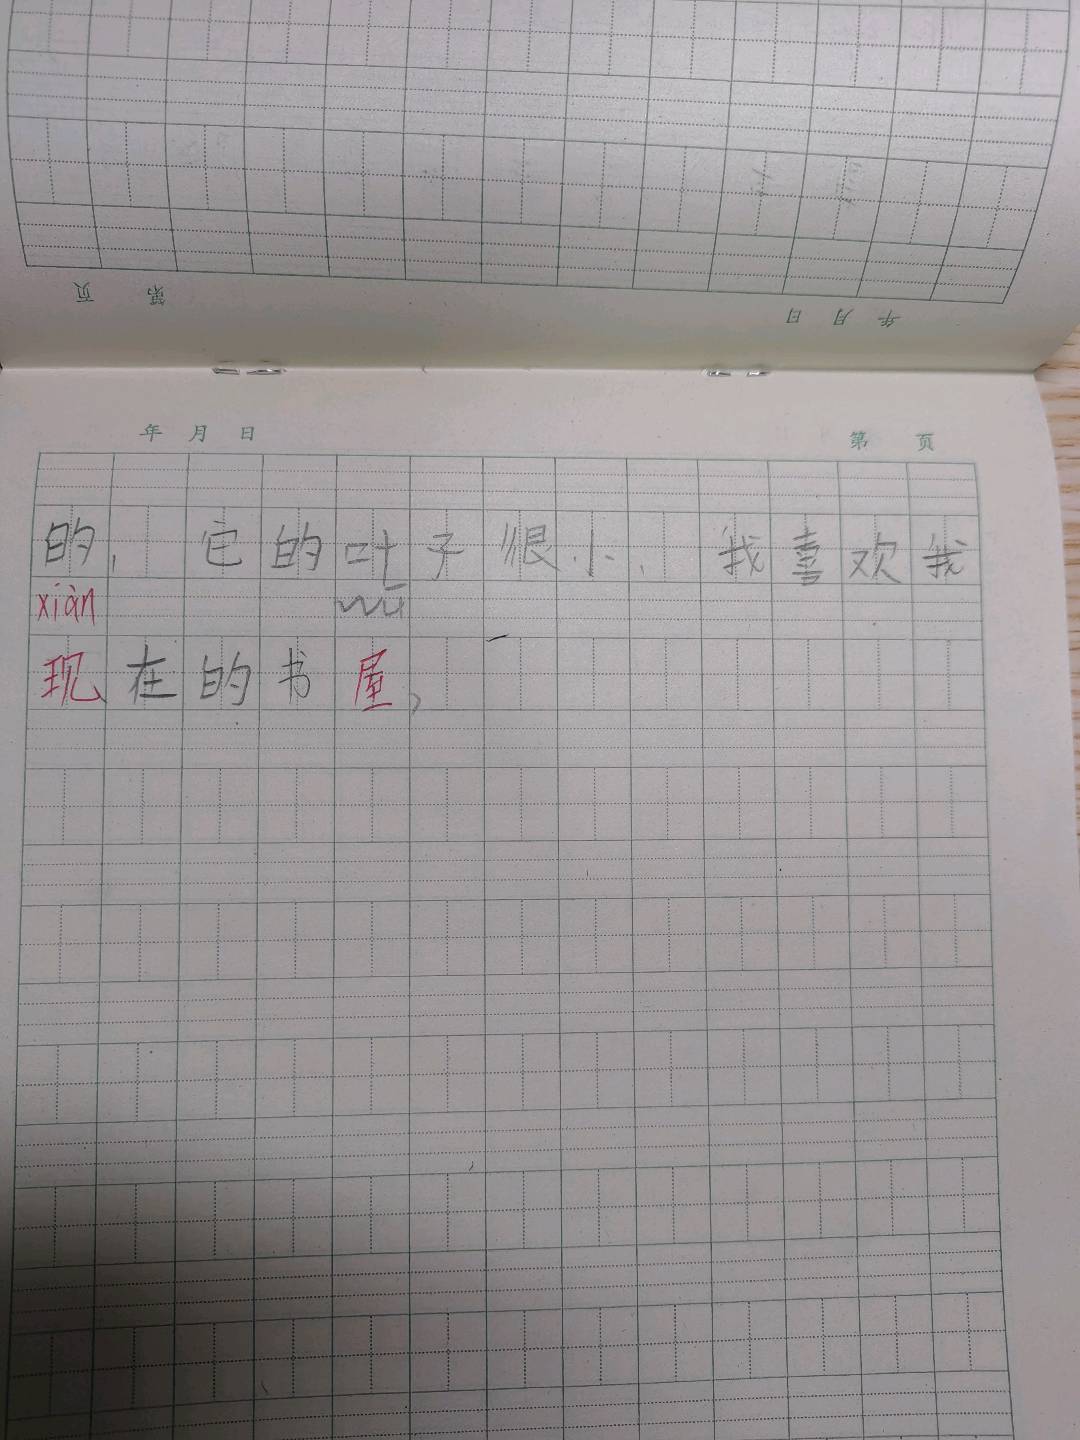 第 页
年 月 日
年 月 日 第 页
的, 它的叶子很小. 我喜欢我
xiàn wū
现在的书屋,